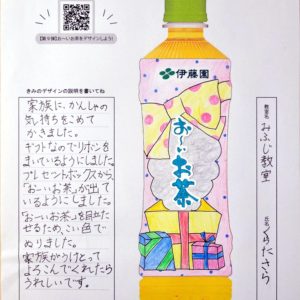 【第9弾】お〜いお茶をデザインしよう!
きみのデザインの説明を書いてね
家族に、かんしゃの
気持ちをこめて
かきました。
ギフトなのでリボンを
まいているようにしました。
プレゼントボックスから、
「お〜いお茶」が出て
いるようにしました。
「お〜いお茶」を目立た
せるため、こい色で
ぬりました。
家族がうけとって
よろこんでくれたら
うれしいです。
伊藤園
お〜いお茶
教室名
みふじ教室
氏名
くりたさら